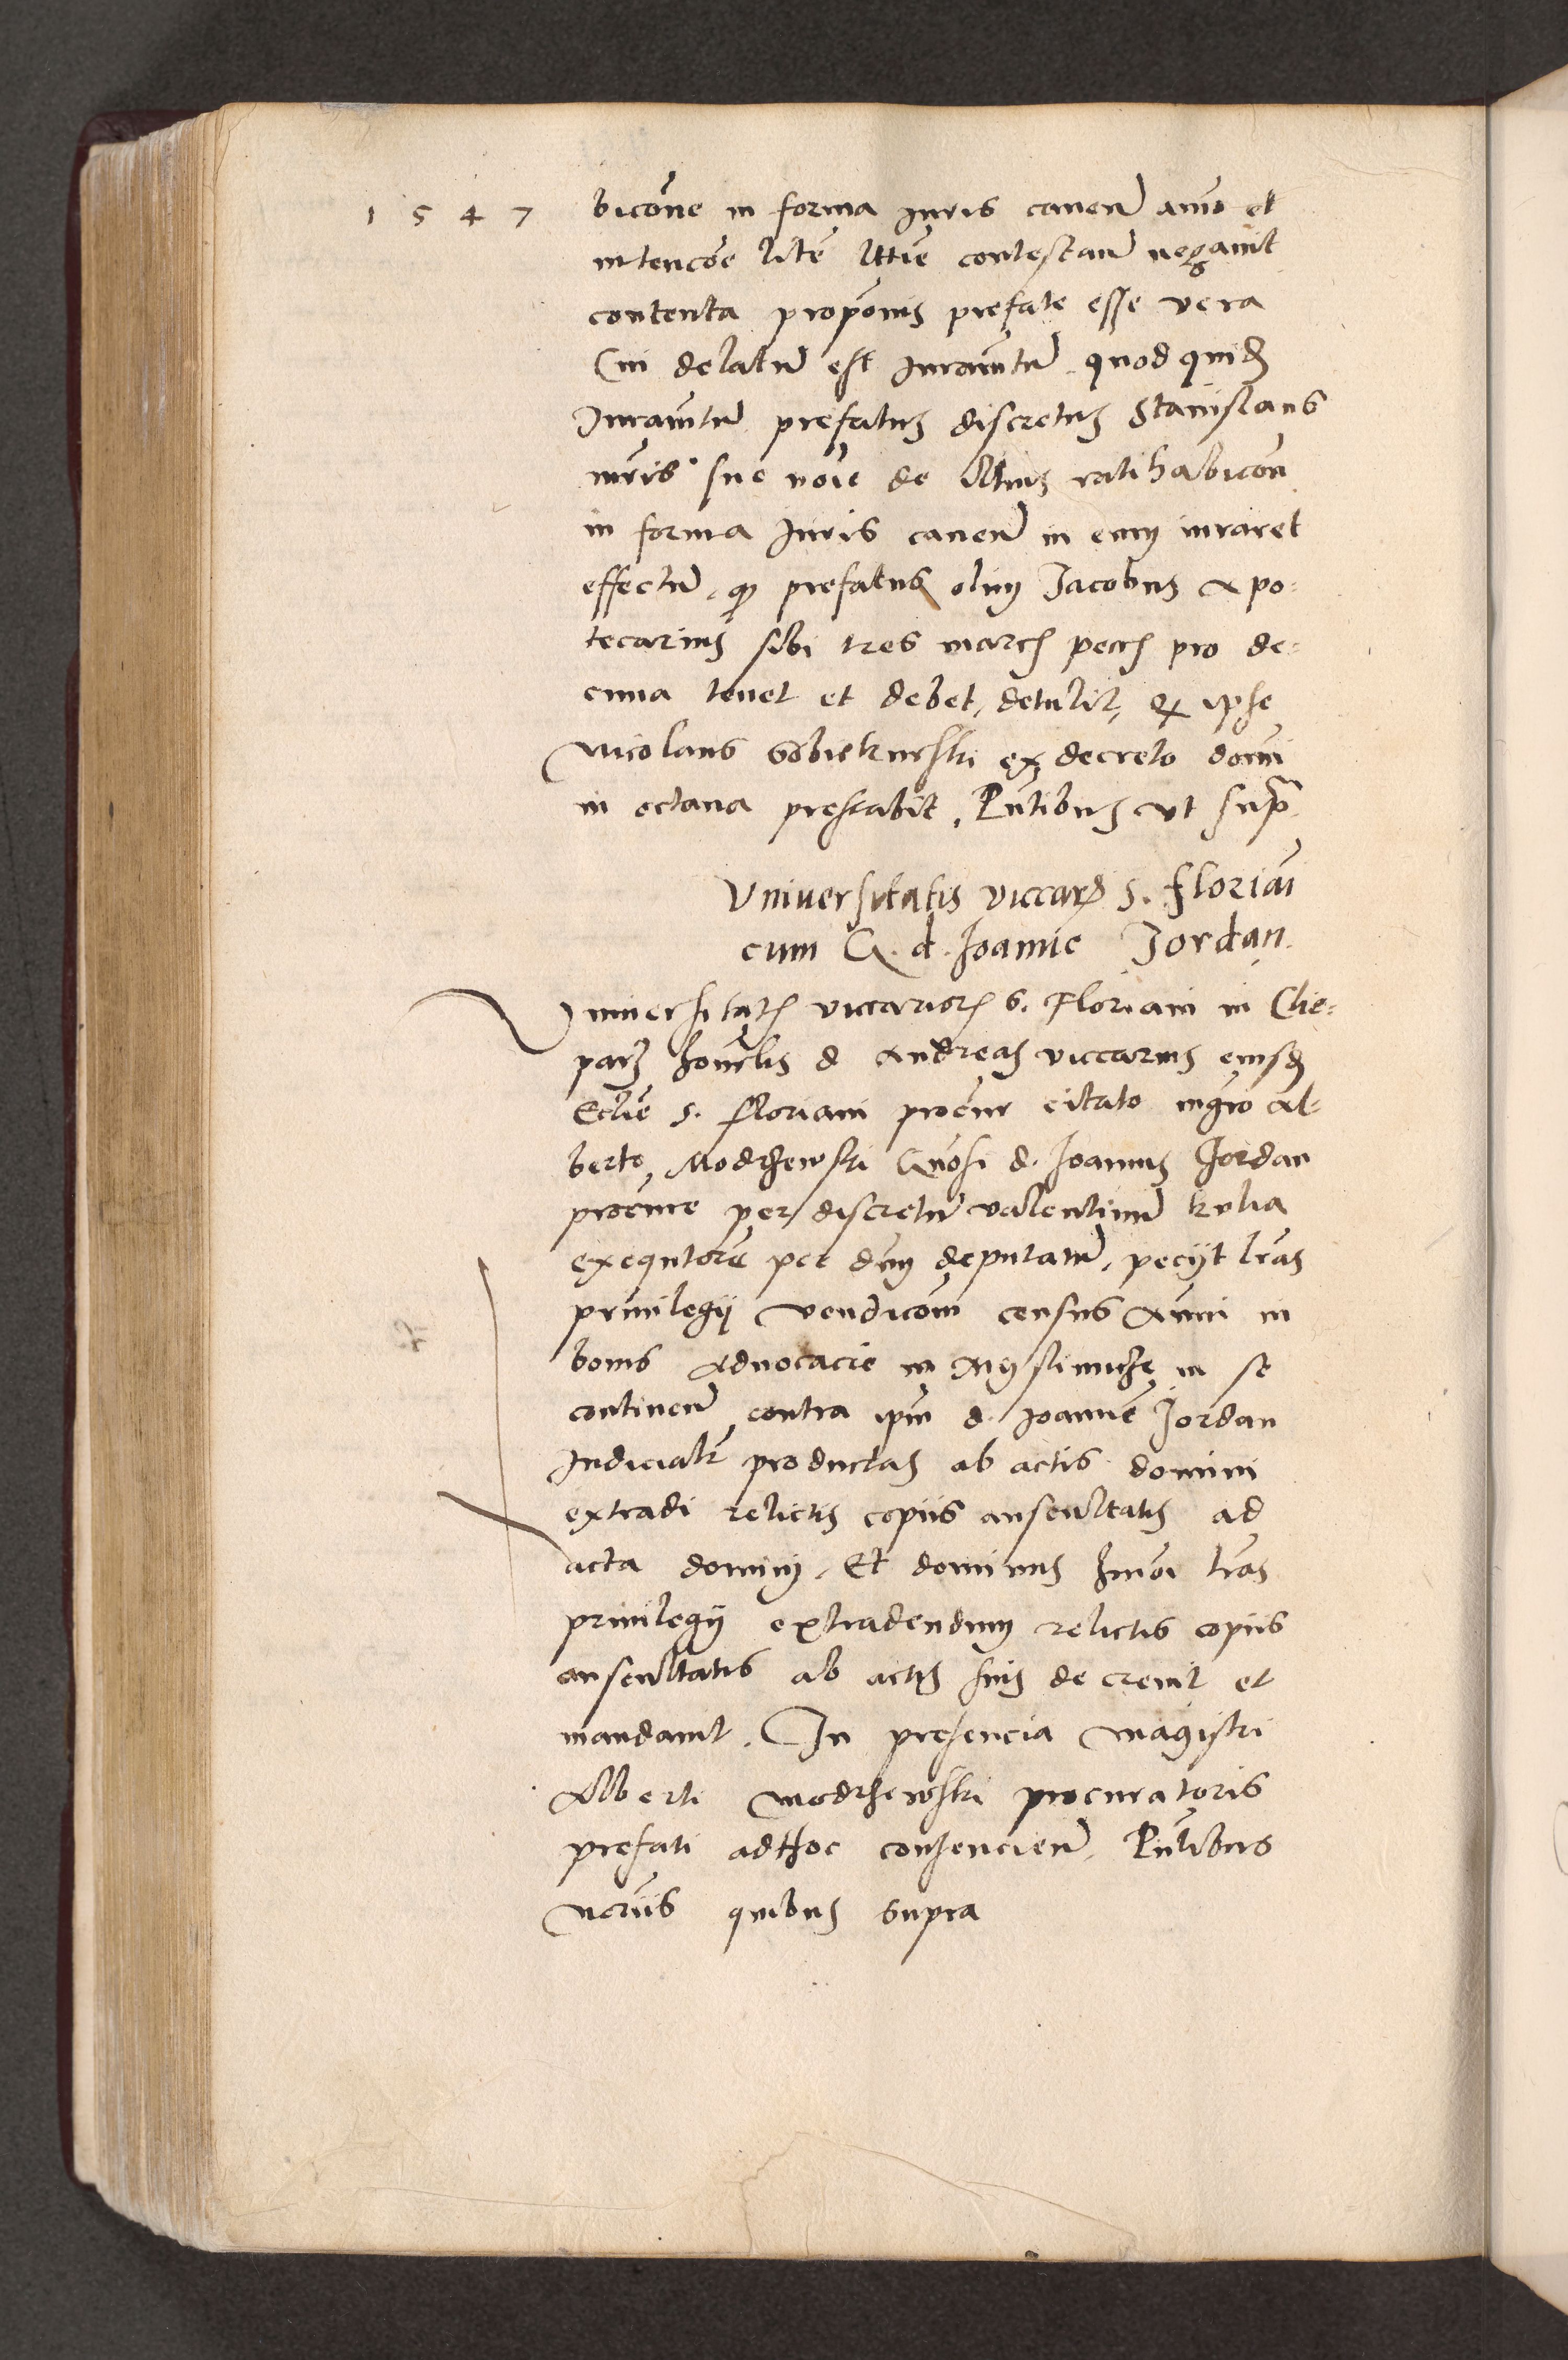 1 5 4 7
bicone in forma Juris caven animo et
intencoe litem lttie contestan negavit
contenta propōnis prefate esse vera
Cui delatum est Juramtum quod quidem
Juramtum prefatus discretus Stanislaus
nōie de illius ratihabicon
in forma Juris caven in eum iuraret
effectum, qz prefatus olim Jacobus Apo:
tecarius sibi tres marcas peccs pro de:
cima tenet et debet, detulit, qz ipse
Nicolaus ex decreto domini
in octava prestabit. Pntibus ut supra
Universitatis viccarior S. Floriani
cum G. d. Joanne Jordan.
Universitatis viccariorum S. Floriani in Cle:
parz honorabilis d Andreas viccarius eiusdem
Ecclie S. Floriani procur citato magro Al:
berto Modrzewski Gnosi d. Joannis Jordan
procure per discretum valentinum kulia
exequtorem per dnm deputatum, peciit lras
privilegij vendiconi census Annui in
bonis Advocacie in in se
continen contra ipm d. Joannem Jordan
Judicialr productas ab actis domini
extradi relictis copiis auscultatis ad
acta domini, Et dominus hmoi lras
privilegij extradendum relictis copiis
auscultatis ab actis suis decrevit et
mandavit. In presencia magistri
Alberti Modrzewski procuratoris
prefati adhoc consencien, Pntibus
quibus supra